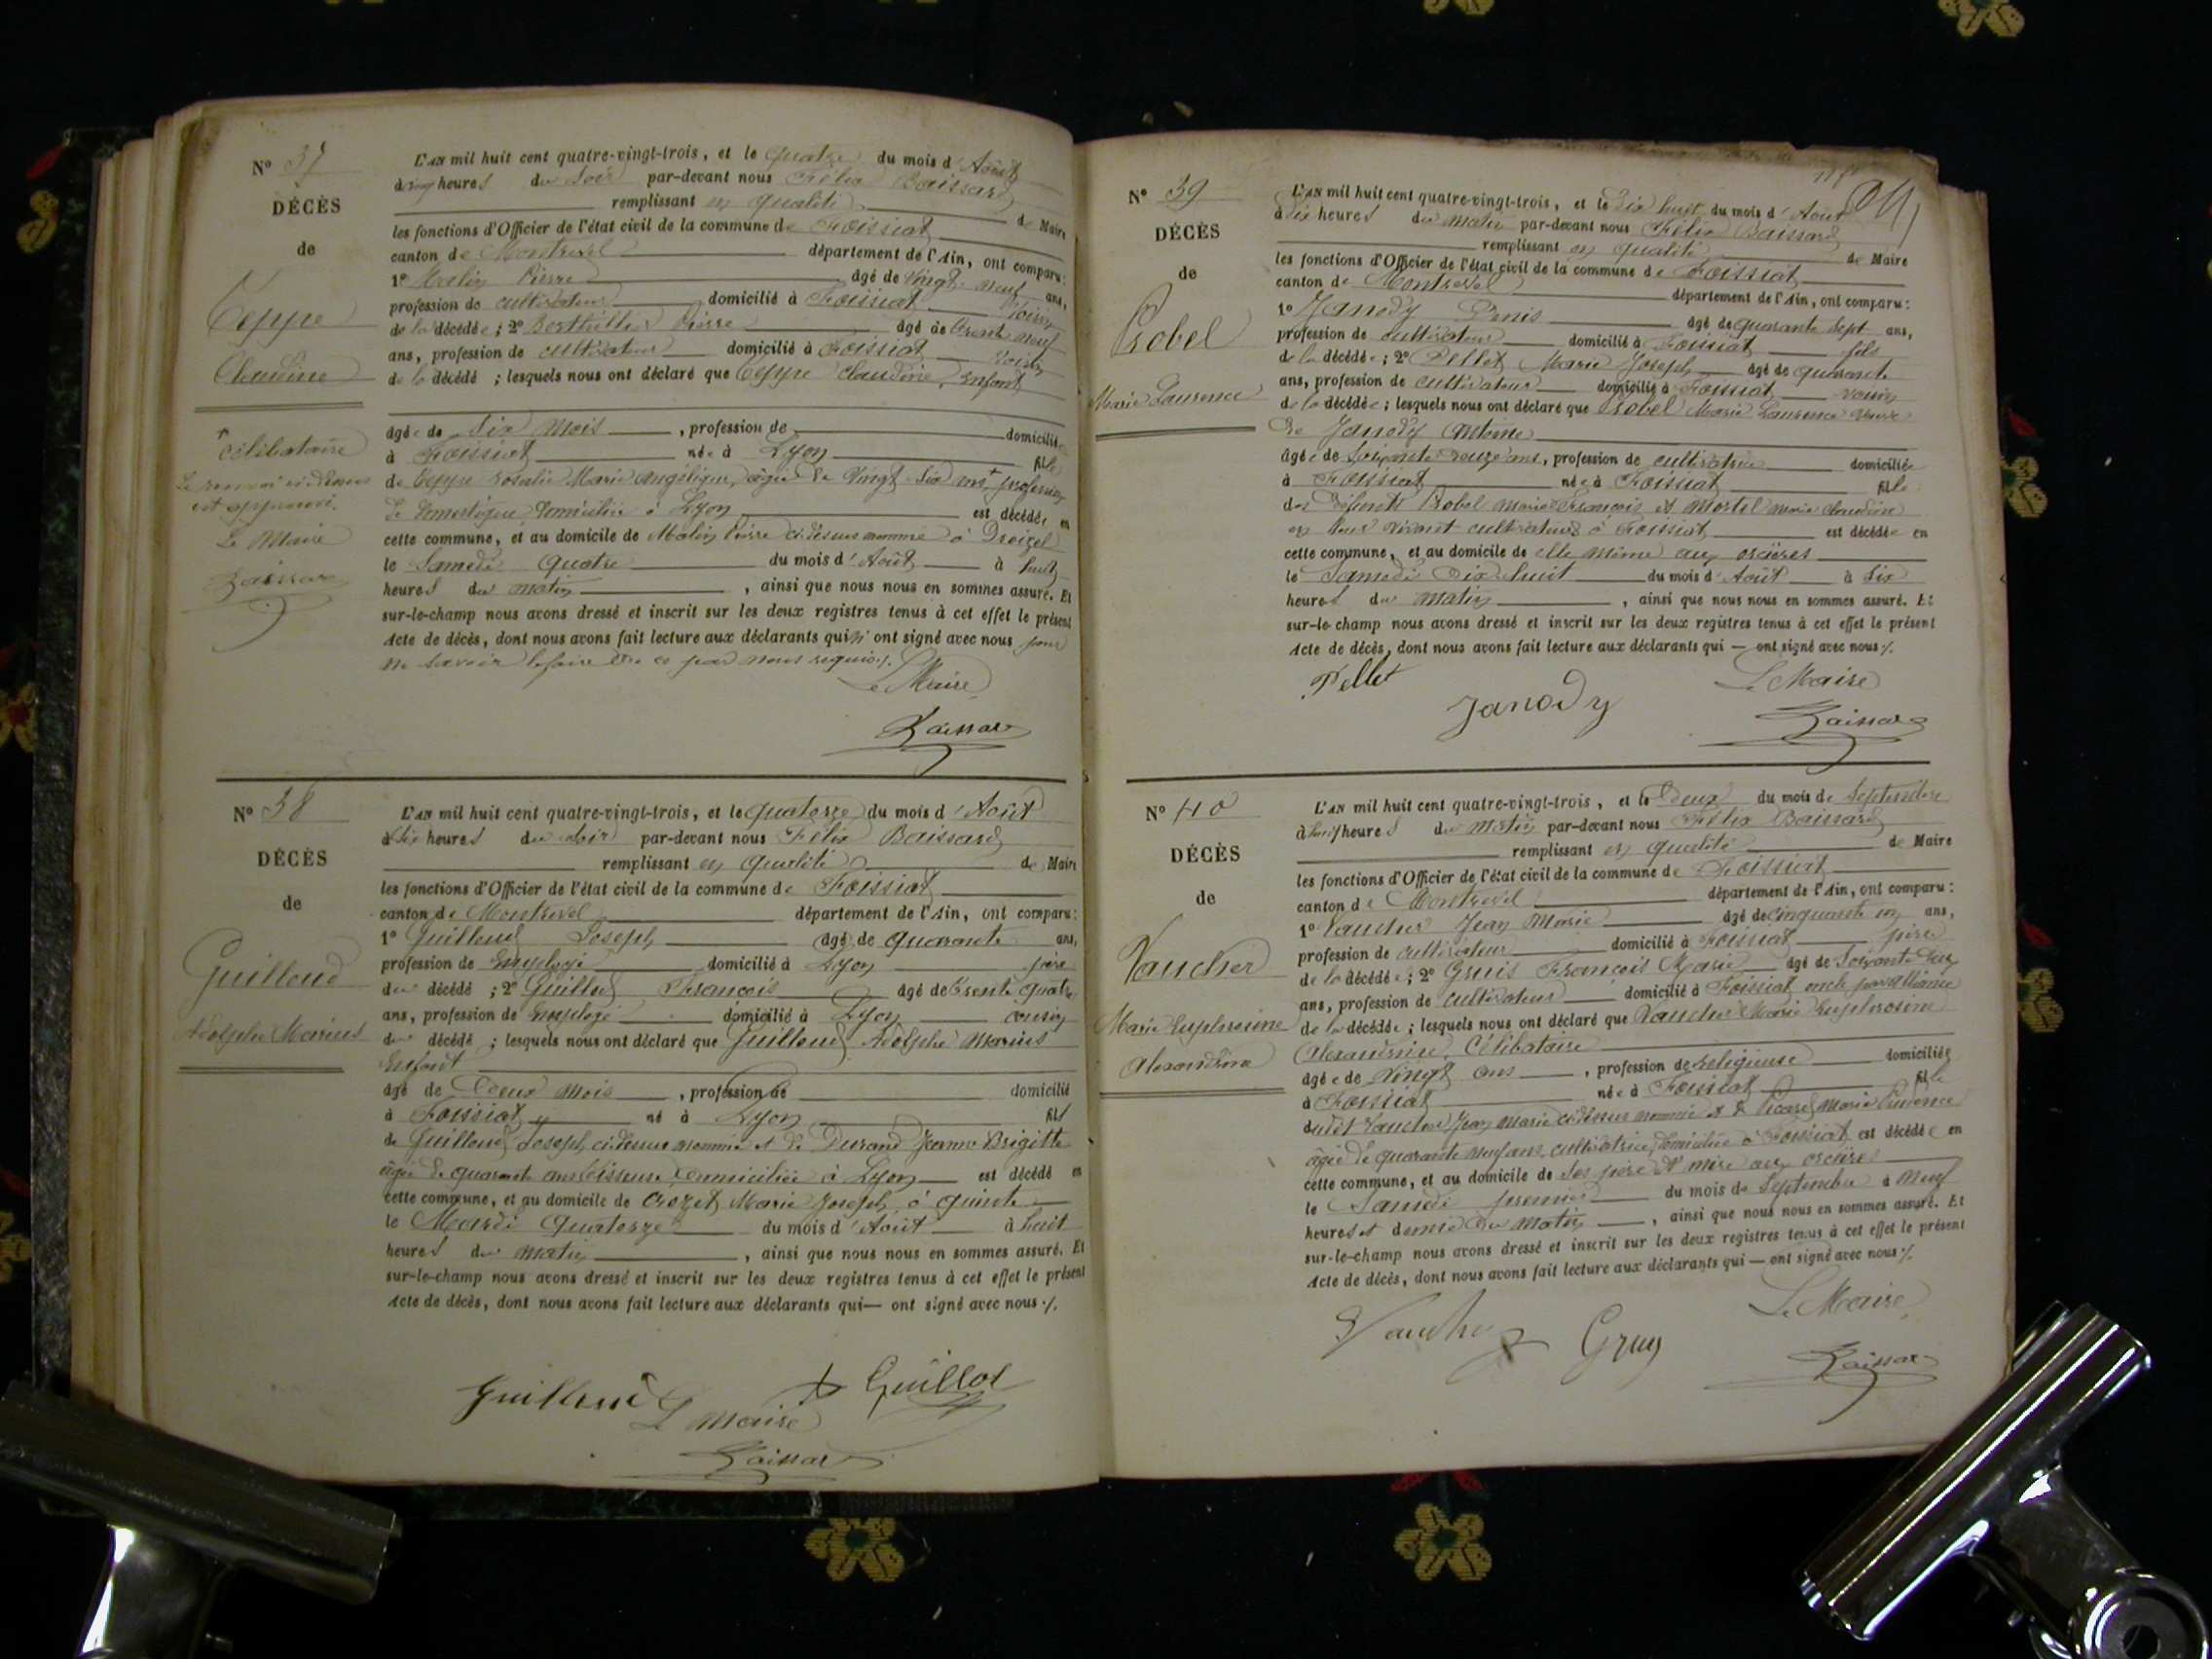 N° 37
DÉCÈS
de
Teppe
Claudine
+
célibataire
Le renvoi ci-dessus
est approuvé.
Le Maire
Baissard
L'AN mil huit cent quatre-vingt-trois, et le quatre du mois d'Août
à cinq heures du soir par-devant nous Félix Baissard
remplissant en qualité de Maire
les fonctions d'Officier de l'état civil de la commune de Foissiat
canton de Montrevel département de l'Ain, ont comparu:
1° Malin Pierre âgé de vingt neuf ans,
profession de cultivateur domicilié à Foissiat voisin
de la décédée; 2° Berthillier Pierre âgé de trente neuf
ans, profession de cultivateur domicilié à Foissiat voisin
de la décédé; lesquels nous ont déclaré que Teppe Claudine, Enfant
âgée de six mois, profession de domiciliée
à Foissiat née à Lyon fille
de Teppe Rosalie Marie Angélique, âgée de vingt six ans, + profession
de domestique domiciliée à Lyon est décédée en
cette commune, et au domicile de Malin Pierre ci-dessus nommé à Droizel
le Samedi quatre du mois d'Août à huit
heures du matin, ainsi que nous nous en sommes assuré. Et
sur-le-champ nous avons dressé et inscrit sur les deux registres tenus à cet effet le présent
Acte de décès, dont nous avons fait lecture aux déclarants qui n'ont signé avec nous pour
ne savoir le faire de ce par nous requis ./.
Le Maire
Baissard
N° 38
DÉCÈS
de
Guilloud
Adolphe Marius
L'AN mil huit cent quatre-vingt-trois, et le quatorze du mois d'Août
à six heures du soir par-devant nous Félix Baissard
remplissant en qualité de Maire
les fonctions d'Officier de l'état civil de la commune de Foissiat
canton de Montrevel département de l'Ain, ont comparu:
1° Guilloud Joseph âgé de quarante ans,
profession de Employé domicilié à Lyon père
du décédé; 2° Guilloud François âgé de trente quatre
ans, profession de Employé domicilié à Lyon cousin
du décédé; lesquels nous ont déclaré que Guilloud Adolphe Marius
Enfant
âgé de Deux mois, profession de domicilié
à Foissiat né à Lyon fils
de Guilloud Joseph, ci-dessus nommé et de Durand Jeanne Brigitte
âgée de quarante ans tisseuse domiciliée à Lyon est décédé en
cette commune, et au domicile de Crozet Marie Joseph, à quinte
le Mardi Quatorze du mois d'Août à huit
heures du matin, ainsi que nous nous en sommes assuré. Et
sur-le-champ nous avons dressé et inscrit sur les deux registres tenus à cet effet le présent
Acte de décès, dont nous avons fait lecture aux déclarants qui — ont signé avec nous ./.
Guilloud Guillot
Le Maire
Baissard
N° 39
DÉCÈS
de
Probel
Marie Laurence
L'AN mil huit cent quatre-vingt-trois, et le dix huit du mois d'Août
à dix heures du matin par-devant nous Félix Baissard
remplissant en qualité de Maire
les fonctions d'Officier de l'état civil de la commune de Foissiat
canton de Montrevel département de l'Ain, ont comparu:
1° Janody Denis âgé de quarante sept ans,
profession de cultivateur domicilié à Foissiat fils
de la décédée; 2° Pellet Marie Joseph âgé de quarante
ans, profession de cultivateur domicilié à Foissiat voisin
de la décédée; lesquels nous ont déclaré que Probel Marie Laurence veuve
de Janody Antoine
âgée de soixante douze ans, profession de cultivatrice domiciliée
à Foissiat née à Foissiat fille
des défunts Probel Marie François et Mortel Marie Claudine
en leur vivant cultivateurs à Foissiat est décédée en
cette commune, et au domicile de elle même aux orcières
le Samedi dix huit du mois d'Août à six
heures du matin, ainsi que nous nous en sommes assuré. Et
sur-le-champ nous avons dressé et inscrit sur les deux registres tenus à cet effet le présent
Acte de décès, dont nous avons fait lecture aux déclarants qui — ont signé avec nous ./.
Pellet Janody Le Maire
Baissard
N° 40
DÉCÈS
de
Vaucher
Marie Euphrosine
Alexandrine
L'AN mil huit cent quatre-vingt-trois, et le Deux du mois de Septembre
à huit heures du matin par-devant nous Félix Baissard
remplissant en qualité de Maire
les fonctions d'Officier de l'état civil de la commune de Foissiat
canton de Montrevel département de l'Ain, ont comparu:
1° Vaucher Jean Marie âgé de cinquante un ans,
profession de cultivateur domicilié à Foissiat père
de la décédée; 2° Gruis François Marie âgé de Soixante deux
ans, profession de cultivateur domicilié à Foissiat oncle par alliance
de la décédée; lesquels nous ont déclaré que Vaucher Marie Euphrosine
Alexandrine, Célibataire
âgée de vingt ans, profession de religieuse domiciliée
à Foissiat née à Foissiat fille
dudit Vaucher Jean Marie ci-dessus nommé et de Picard Marie Prudence
âgée de quarante neuf ans, cultivatrice, domiciliée à Foissiat est décédée en
cette commune, et au domicile de ses père et mère aux orcières
le Samedi premier du mois de Septembre à neuf
heures et demie du matin, ainsi que nous nous en sommes assuré. Et
sur-le-champ nous avons dressé et inscrit sur les deux registres tenus à cet effet le présent
Acte de décès, dont nous avons fait lecture aux déclarants qui — ont signé avec nous ./.
Vaucher Gruy Le Maire
Baissard